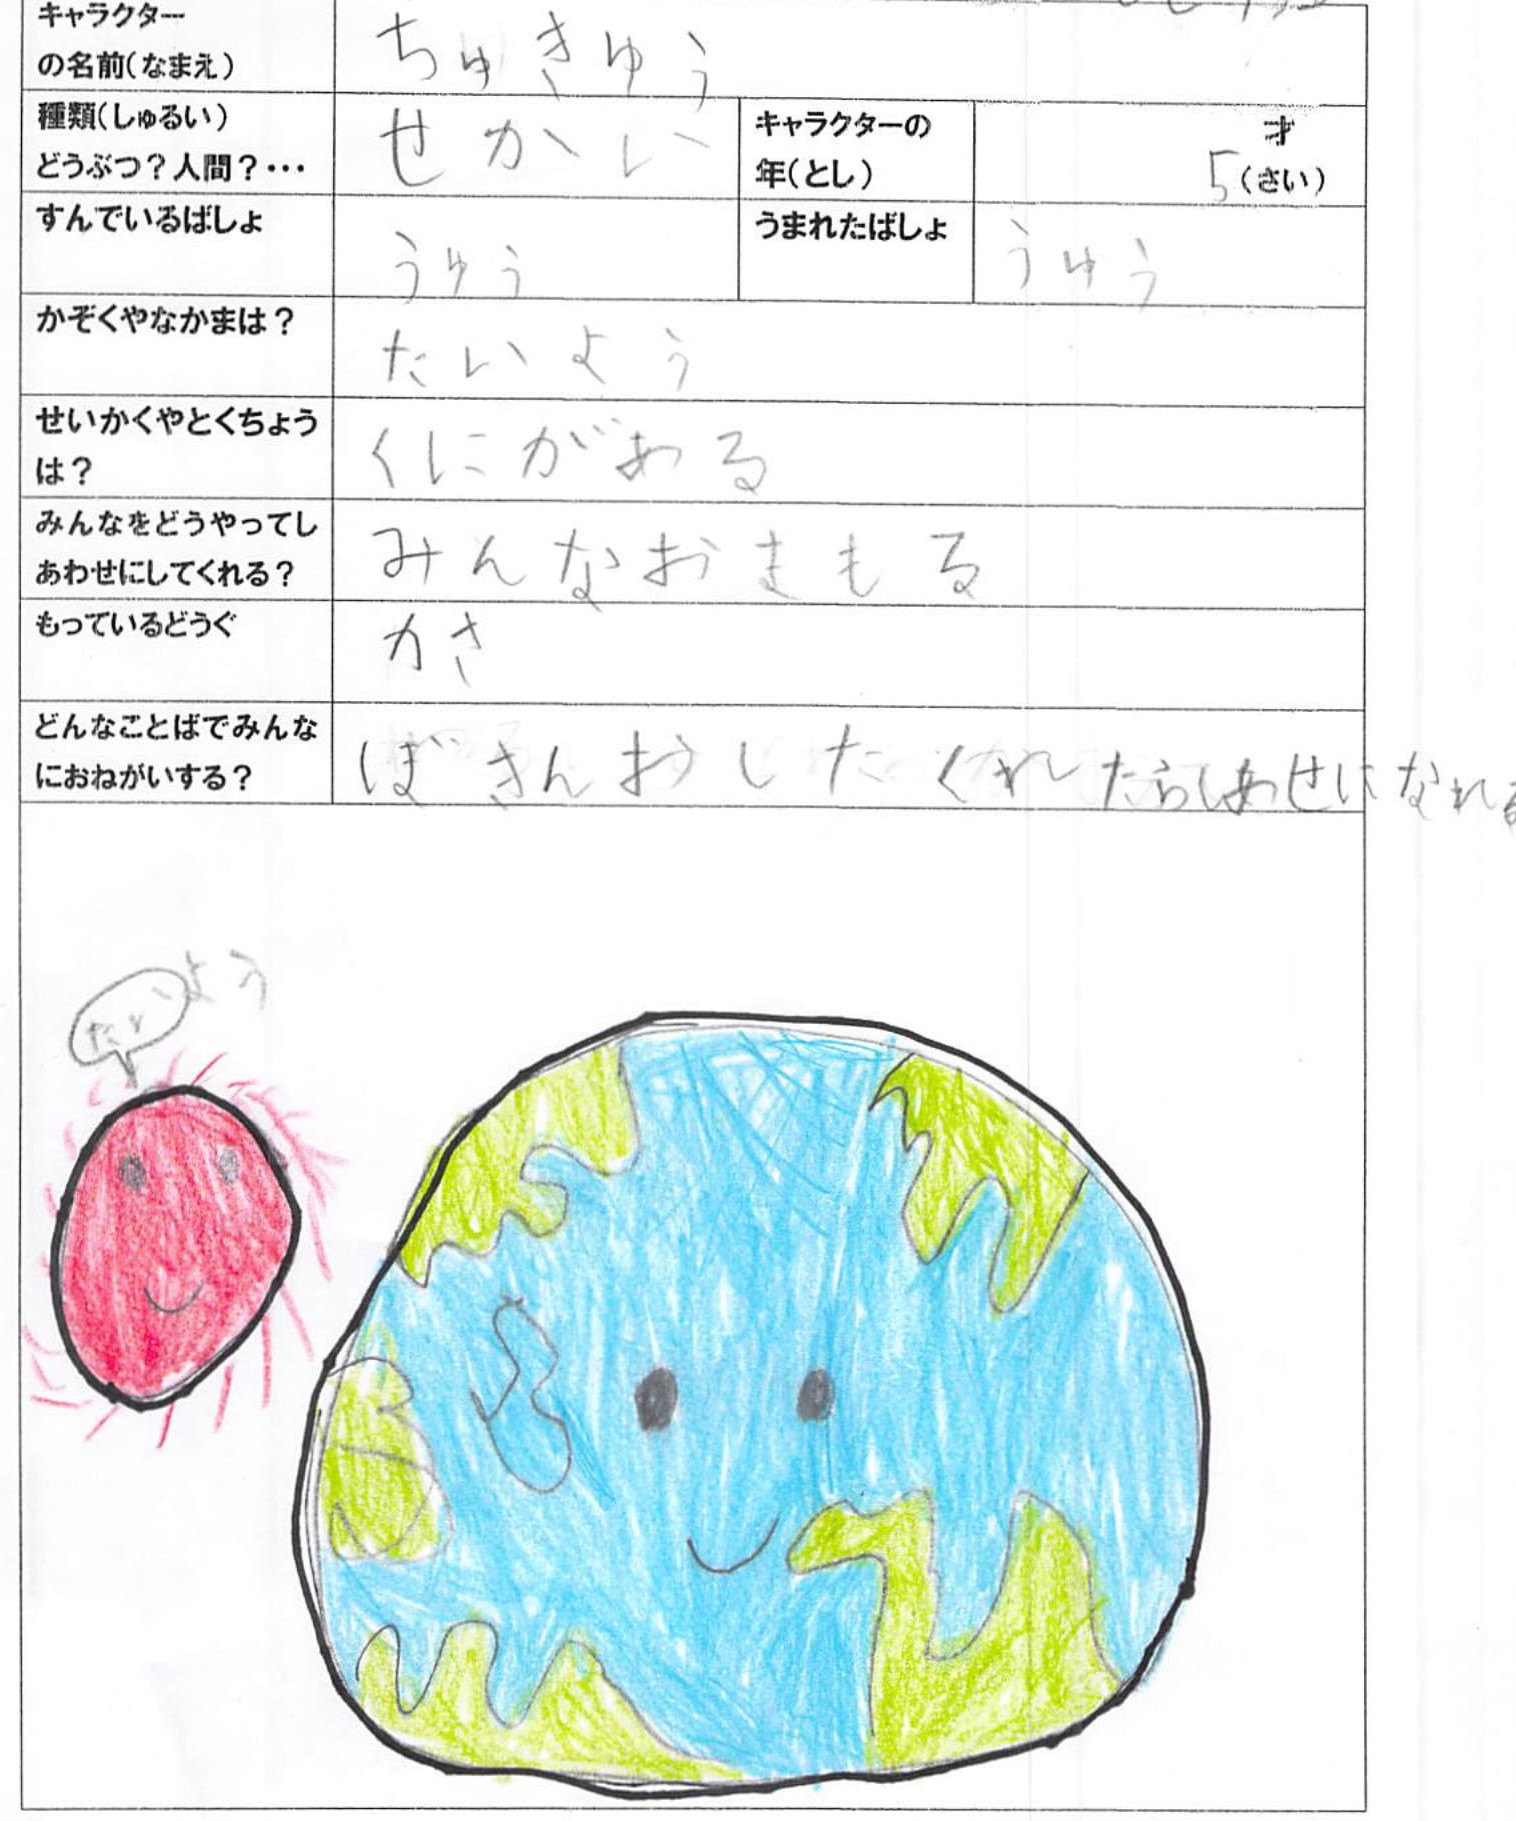 キャラクター
の名前(なまえ)
ちゅきゅう
種類(しゅるい)
どうぶつ?人間?・・・
せかい
キャラクターの
年(とし)
才
5(さい)
すんでいるばしょ
うゅう
うまれたばしょ
うゅう
かぞくやなかまは?
たいよう
せいかくやとくちょう
は?
くにがある
みんなをどうやってし
あわせにしてくれる?
みんなおまもる
もっているどうぐ
かさ
どんなことばでみんな
におねがいする?
ぼきんおしたくれたらしあせになれる
たいよう